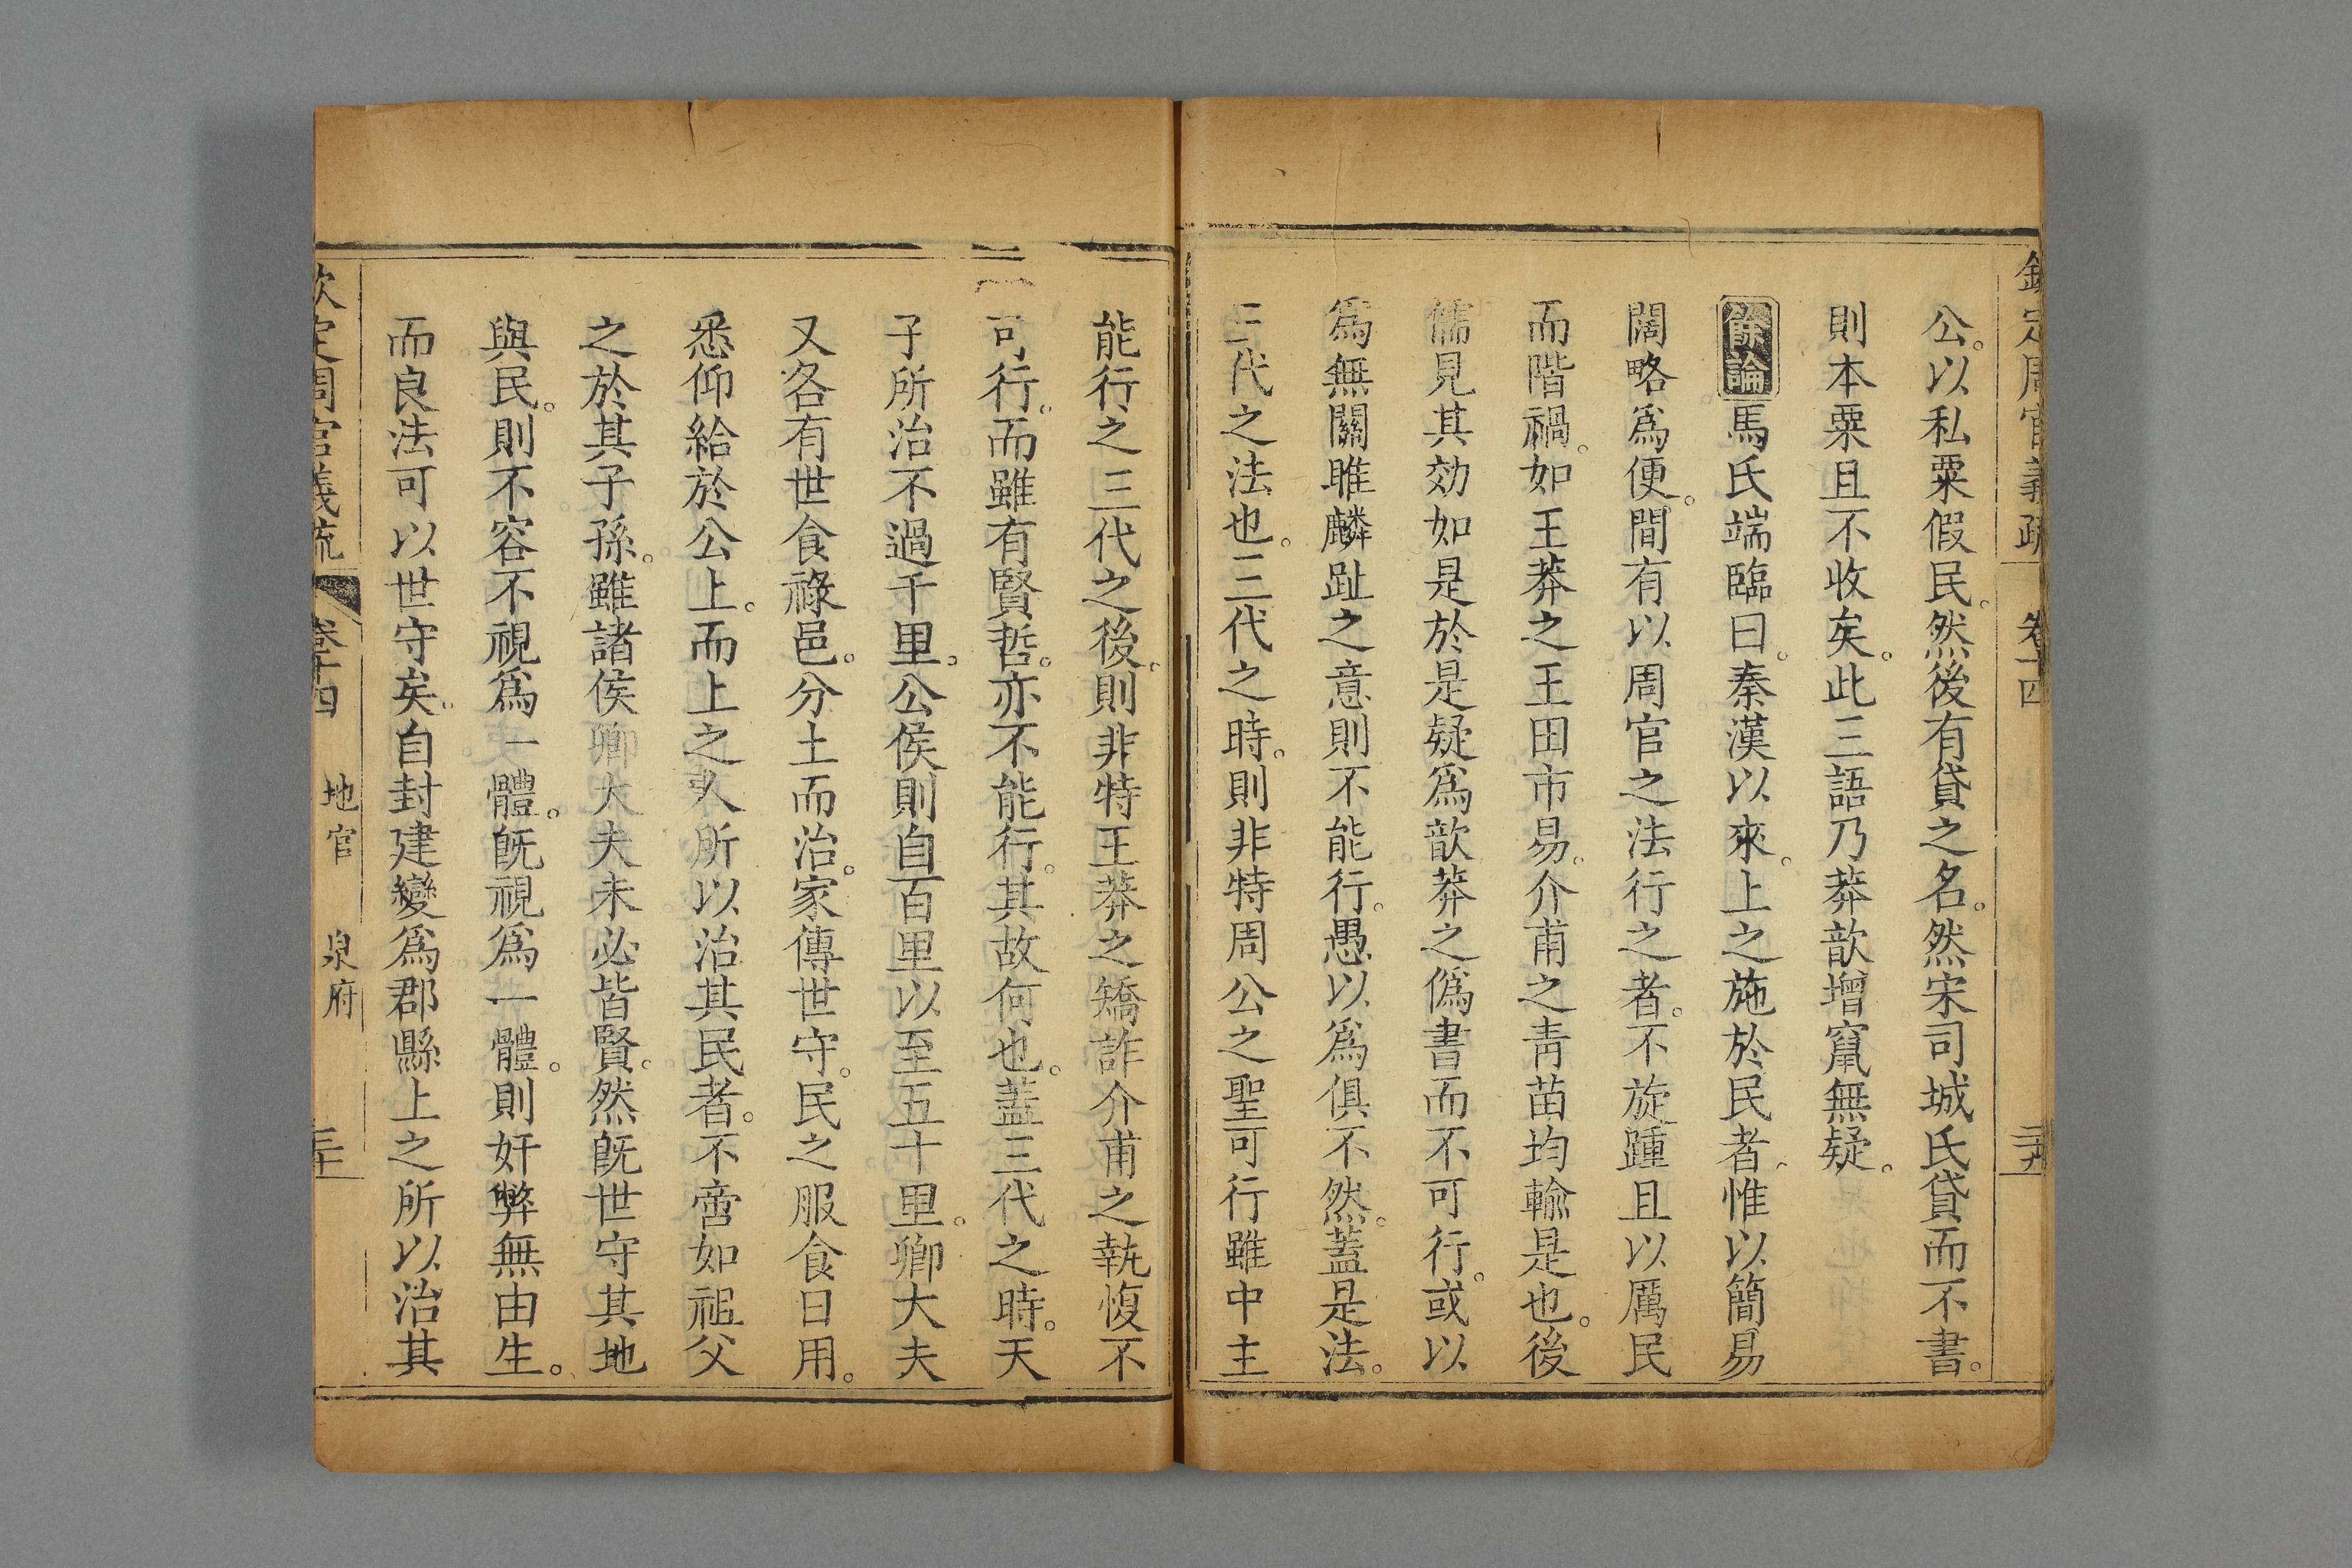 欽定周官義疏 卷十四 三十九
公。以私粟假民。然後有貸之名。然宋司城氏貸而不書。
則本粟且不收矣。此三語乃莽歆增竄無疑。
餘論馬氏端臨曰。秦漢以來。上之施於民者。惟以簡易
闊略爲便。間有以周官之法行之者。不旋踵且以厲民
而階禍。如王莽之王田市易。介甫之青苗均輸是也。後
儒見其効如是於是疑爲歆莽之僞書而不可行。或以
爲無關雎麟趾之意則不能行。愚以爲俱不然。蓋是法。
三代之法也。三代之時。則非特周公之聖可行雖中主
能行之三代之後。則非特王莽之矯詐介甫之執愎不
可行。而雖有賢哲。亦不能行。其故何也。蓋三代之時。天
子所治不過千里。公侯則自百里以至五十里。卿大夫
又各有世食祿邑。分土而治。家傳世守。民之服食日用。
悉仰給於公上。而上之人所以治其民者。不啻如祖父
之於其子孫。雖諸侯卿大夫未必皆賢。然旣世守其地
與民。則不容不視爲一體。旣視爲一體。則奸弊無由生。
而良法可以世守矣。自封建變爲郡縣上之所以治其
欽定周官義疏 卷十四 地官 泉府